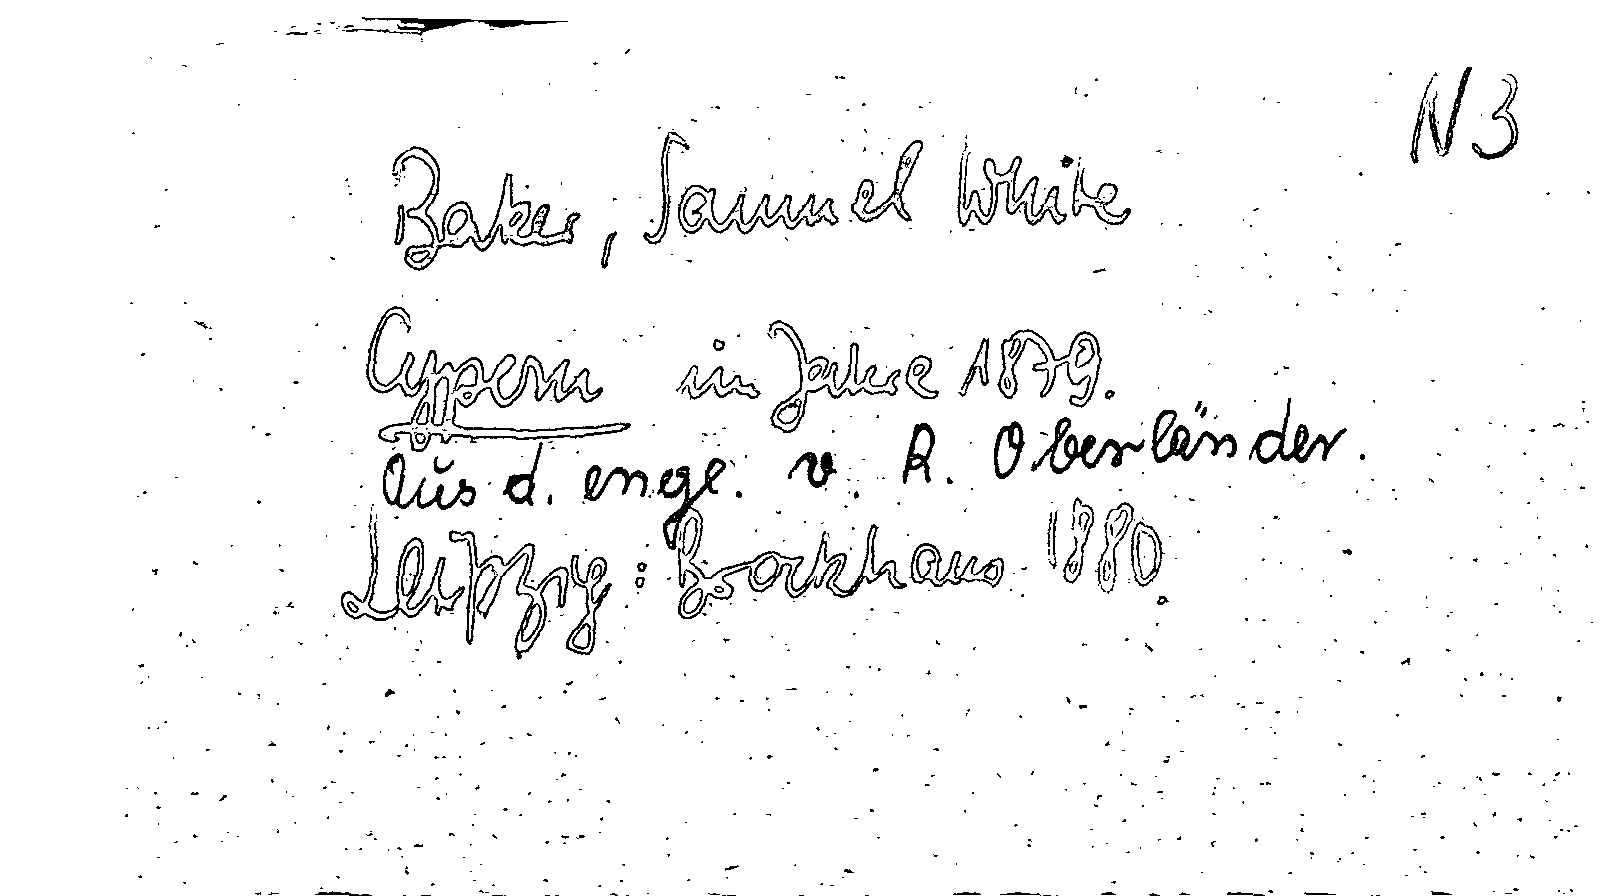 N 3
Baker, Samuel White
Cypern im Jahre 1879.
Aus d. engl. v. R. Oberländer.
Leipzig: Brockhaus 1880.